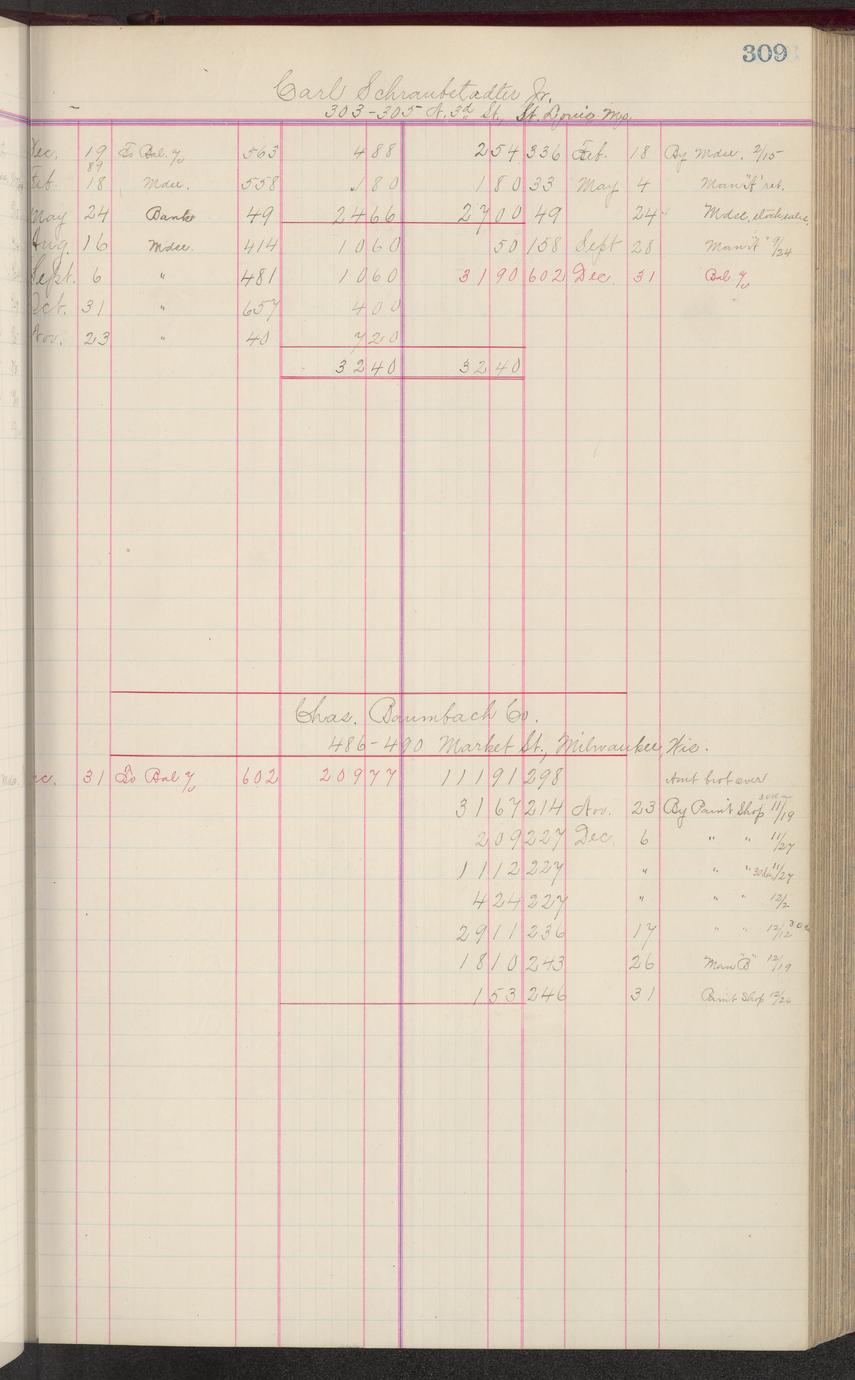 309
Carl Schraubstadter Jr.
303-305 N. 3d St., St. Louis Mo.
Dec. 19 To Bal. 563 4 88 2 54 336 Feb. 18 By Mdse. 2/15
89
Feb. 18 Mdse. 558 1 80 1 80 33 May 4 Man "A" ret.
May 24 Bank 49 24 66 27 00 49 24 Mdse,
Aug. 16 Mdse. 414 10 60 50 158 Sept 28 Man "A" 9/24
Sept. 6 " 481 10 60 31 90 602 Dec. 31 Bal
Oct. 31 " 657 4 00
Nov. 23 " 40 7 20
32 40 32 40
Chas. Baumbach Co.
486-490 Market St., Milwaukee, Wis.
31 To Bal 602 209 77 111 91 298 Amt brot over
31 67 214 Nov. 23 By Paint Shop 11/19
2 09 227 Dec. 6 " " 11/27
11 12 227 " " " 30 da 11/27
4 24 227 " " " 12/2
29 11 236 17 " " 12/12
18 10 243 26 Man "B" 12/19
1 53 246 31 Paint Shop 12/26